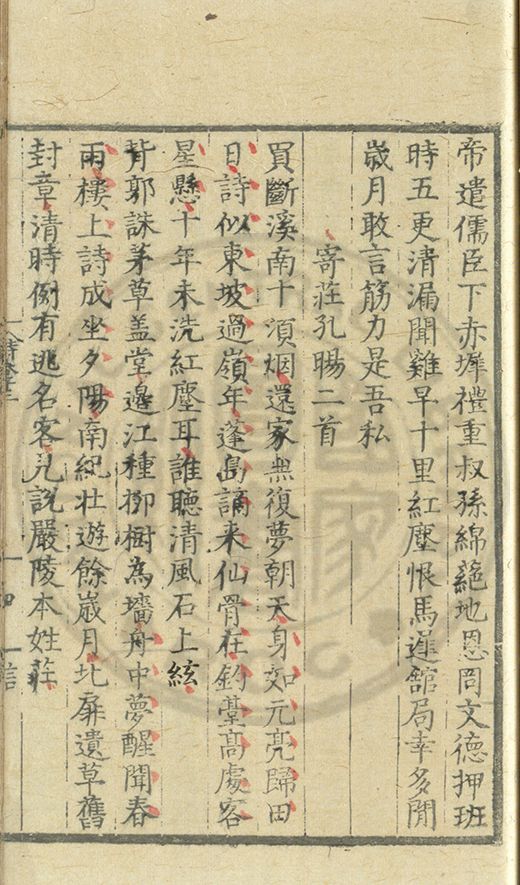 帝遣儒臣下赤墀禮重叔孫綿蕝地恩同文德押班
時五更清漏聞雞早十里紅塵恨馬遲舘局幸多閒
歲月敢言筋力是吾私
寄莊孔暘二首
買斷溪南十頃烟還家無復夢朝天身如元亮歸田
日詩似東坡過嶺年蓬島謫來仙骨在釣臺高處客
星懸十年未洗紅塵耳誰聽清風石上絃
背郭誅茅草盖堂邊江種柳樹為墻舟中夢醒聞春
雨樓上詩成坐夕陽南紀壯遊餘嵗月北扉遺草舊
封章清時例有逃名客見說嚴陵本姓莊